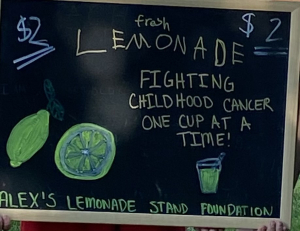 $2 fresh $2
LEMONADE
FIGHTING
CHILDHOOD CANCER
ONE CUP AT A
TIME!
ALEX'S LEMONADE STAND FOUNDATION